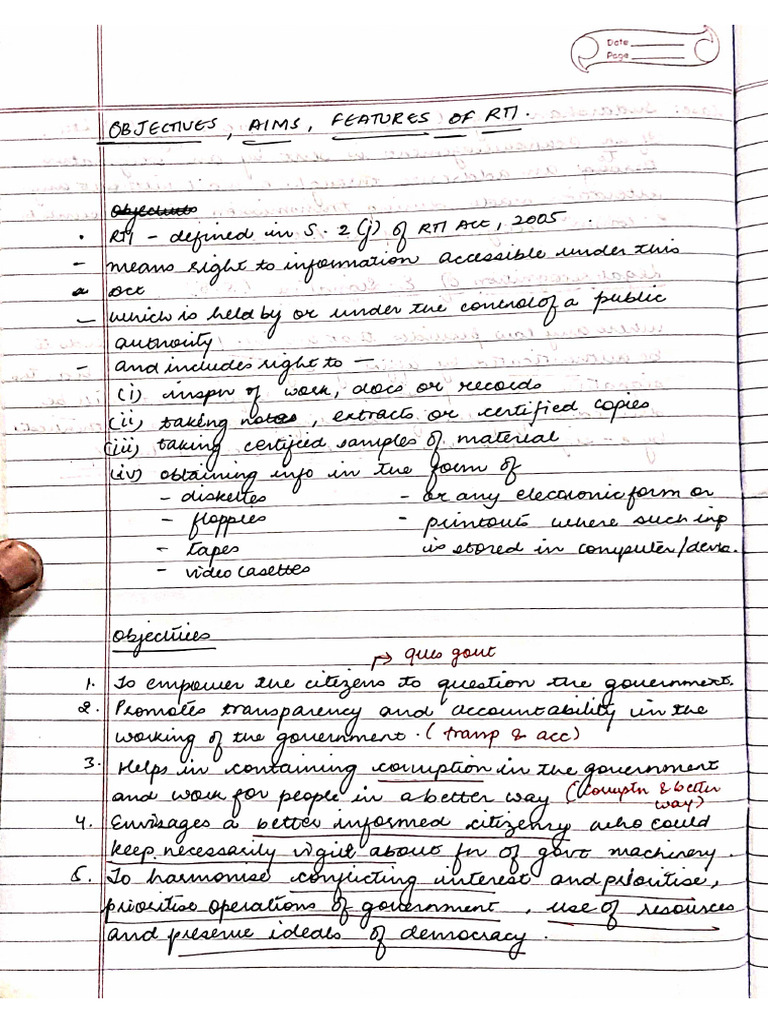 Date
Page
OBJECTIVES, AIMS, FEATURES OF RTI.
Objectives
• RTI - defined in S. 2(j) of RTI Act, 2005.
- means right to information accessible under this
act
- which is held by or under the control of a public
authority
- and includes right to -
(i) inspn of work, docs or records
(ii) taking notes, extracts or certified copies
(iii) taking certified samples of material
(iv) obtaining info in the form of
- diskettes - or any electronic form or
- floppies - printouts where such inf
- tapes is stored in computer/device.
- video casettes
Objectives
→ ques govt
1. To empower the citizens to question the government.
2. Promotes transparency and accountability in the
working of the government. (transp & acc)
3. Helps in containing corruption in the government
and work for people in a better way (corruptn & better
way)
4. Envisages a better informed citizenry who could
keep necessarily vigil about fn of govt machinery.
5. To harmonise conflicting interest and prioritise,
prioritise operations of government, use of resources
and preserve ideals of democracy.